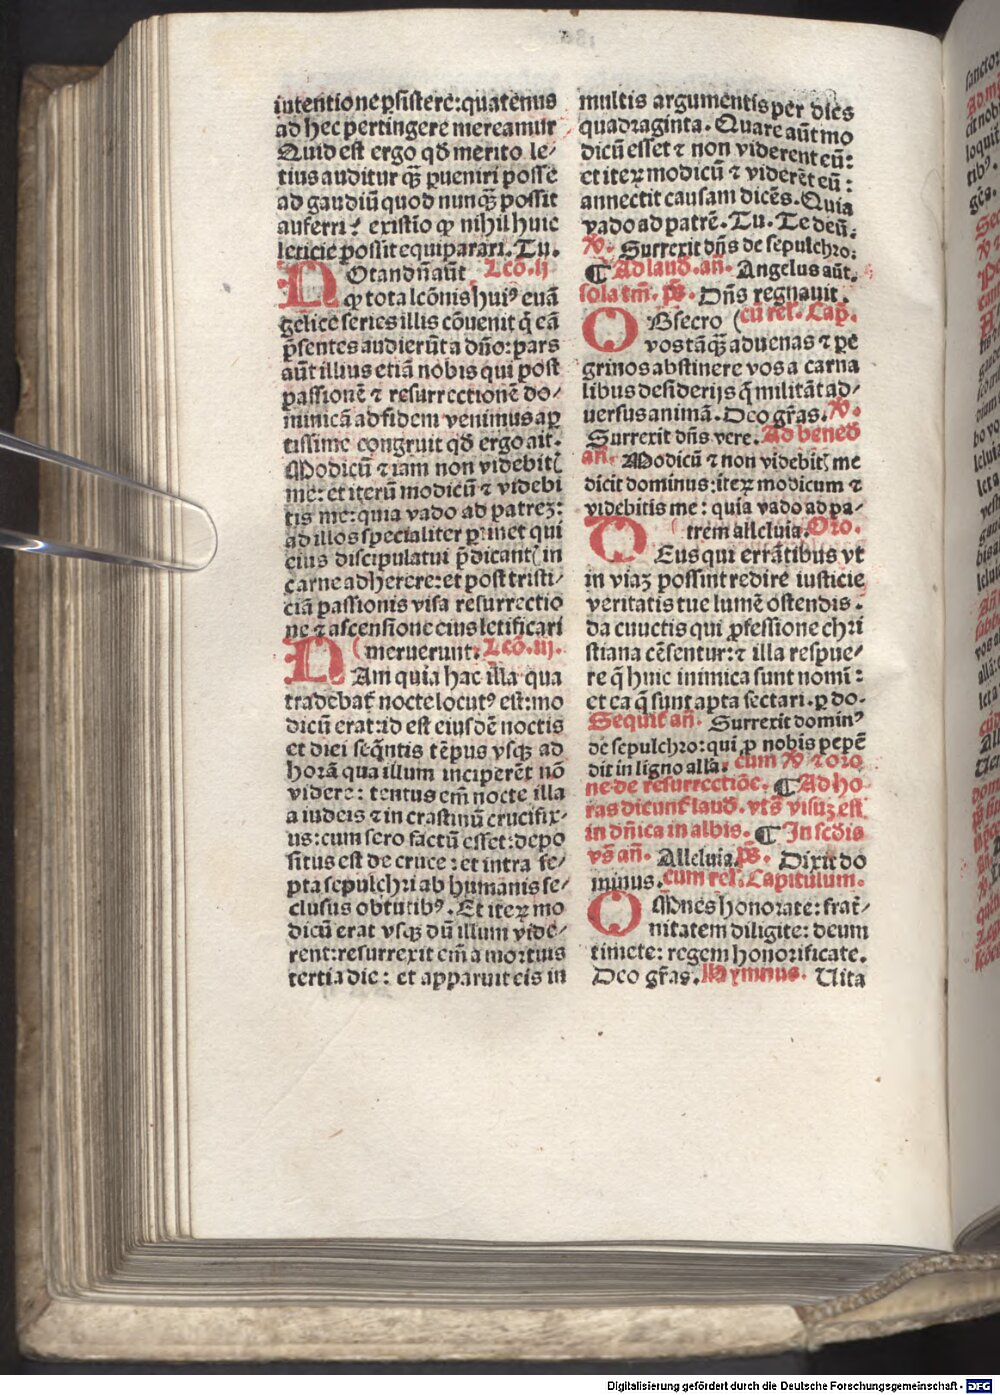 intentione ꝑsistere: quatenus
ad hec pertingere mereamur
Quid est ergo qđ merito le/
tius auditur qꝫ ꝑueniri posse
ad gaudiū quod nunqꝫ possit
auferri? existīo ꝙ nihil huic
leticie possit equiparari. Tu.
NOtandū aūt Lcō. ij
ꝙ tota lcōnis huiꝰ euā
gelice series illis cōuenit q̄ eā
p̄sentes audierūt a dño: pars
aūt illius etiā nobis qui post
passionē ⁊ resurrectionē do/
minicā ad fidem venimus ap
tissime congruit qđ ergo ait.
Modicū ⁊ iam non videbitꝭ
me: et iterū modicū ⁊ videbi
tis me: quia vado ad patreꝫ:
ad illos specialiter ꝑtinet qui
eius discipulatui p̄dicantꝭ in
carne adherere: et post tristi/
ciā passionis visa resurrectio
ne ⁊ ascensione eius letificari
(meruerunt. Lcō. iij.
NAm quia hac illa qua
tradebat̄ nocte locutꝰ est: mo
dicū erat: id est eiusdē noctis
et diei seq̄ntis tēpus vsqꝫ ad
horā qua illum inciperēt nō
videre: tentus em̄ nocte illa
a iudeis ⁊ in crastinū crucifix/
us: cum sero factū esset: depo
situs est de cruce: et intra se/
pta sepulchri ab humanis se/
clusus obtutibꝰ. Et iteꝝ mo
dicū erat vsqꝫ dū illum vide/
rent: resurrexit em̄ a mortuis
tertia die: et apparuit eis in
multis argumentis per dies
quadraginta. Quare aūt mo
dicū esset ⁊ non viderent eū:
et iteꝝ modicū ⁊ viderēt eū:
annectit causam dicēs. Quia
vado ad patrē. Tu. Te deū.
℣. Surrexit dñs de sepulchro:
¶ Ad laud̄. an̄. Angelus aūt.
sola tm̄. ps̄. Dñs regnauit.
OBsecro (cū rel̄. Cap̄.
vos tāqꝫ aduenas ⁊ pe
grinos abstinere vos a carna
libus desiderijs q̄ militāt ad/
uersus animā. Deo gr̄as. ℣.
Surrexit dñs vere. Ad bened̄
an̄. Modicū ⁊ non videbitꝭ me
dicit dominus: iteꝝ modicum ⁊
videbitis me: quia vado ad pa/
(trem alleluia. Oro.
DEus qui errātibus vt
in viaꝫ possint redire iusticie
veritatis tue lumē ostendis.
da cunctis qui ꝓfessione chri
stiana cēsentur: ⁊ illa respue/
re q̄ huic inimica sunt nomī:
et ea q̄ sunt apta sectari. p do.
Sequit̄ an̄. Surrexit dominꝰ
de sepulchro: qui ꝓ nobis pepē
dit in ligno alla. cum ℣ ⁊ oro
ne de resurrectiōe. ¶ Ad ho
ras dicunt̄ laud̄. vts̄ visuꝫ est
in dn̄ica in albis. ¶ In scd̄is
vs̄ an̄. Alleluia. ps̄. Dixit do
minus. cum rel̄. Capitulum.
OMnes honorate: frat̄/
nitatem diligite: deum
timete: regem honorificate.
Deo gr̄as. Hymnus. Uita
Digitalisierung gefördert durch die Deutsche Forschungsgemeinschaft - DFG